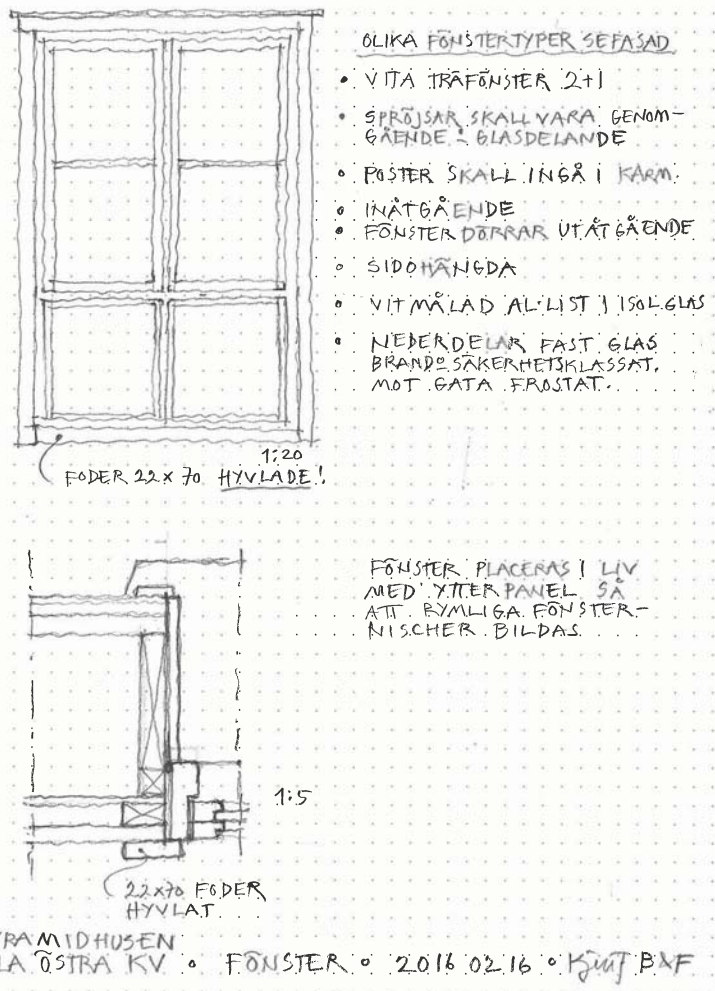 OLIKA FÖNSTERTYPER SE FASAD
• VITA TRÄFÖNSTER 2+1
• SPRÖJSAR SKALL VARA GENOM-
GÅENDE - GLASDELANDE
• POSTER SKALL INGÅ I KARM.
• INÅTGÅENDE
• FÖNSTERDÖRRAR UTÅTGÅENDE
• SIDOHÄNGDA
• VITMÅLAD AL-LIST I ISOL.GLAS
• NEDERDELAR FAST GLAS
BRANDO SÄKERHETSKLASSAT.
MOT GATA FROSTAT.
1:20
FODER 22x70 HYVLADE!
FÖNSTER PLACERAS I LIV
MED YTTERPANEL SÅ
ATT RYMLIGA FÖNSTER-
NISCHER BILDAS.
1:5
22x70 FODER
HYVLAT
RAMIDHUSEN
LA ÖSTRA KV • FÖNSTER • 2016 02 16 •